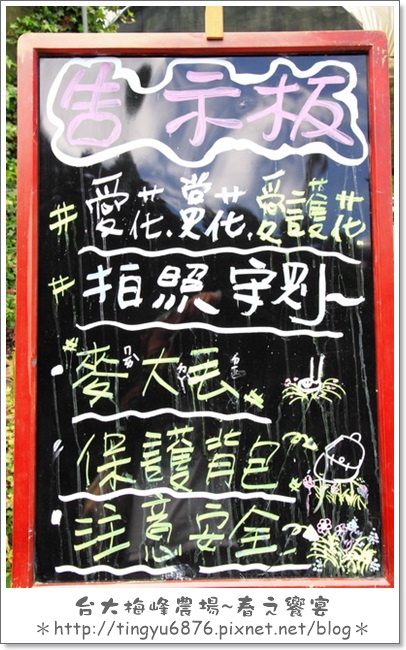 告示板
# 愛花.賞花.愛護花
# 拍照守則~
*麥大丟*
保護背包~
注意安全~
台大梅峰農場~春之饗宴
＊http://tingyu6876.pixnet.net/blog＊